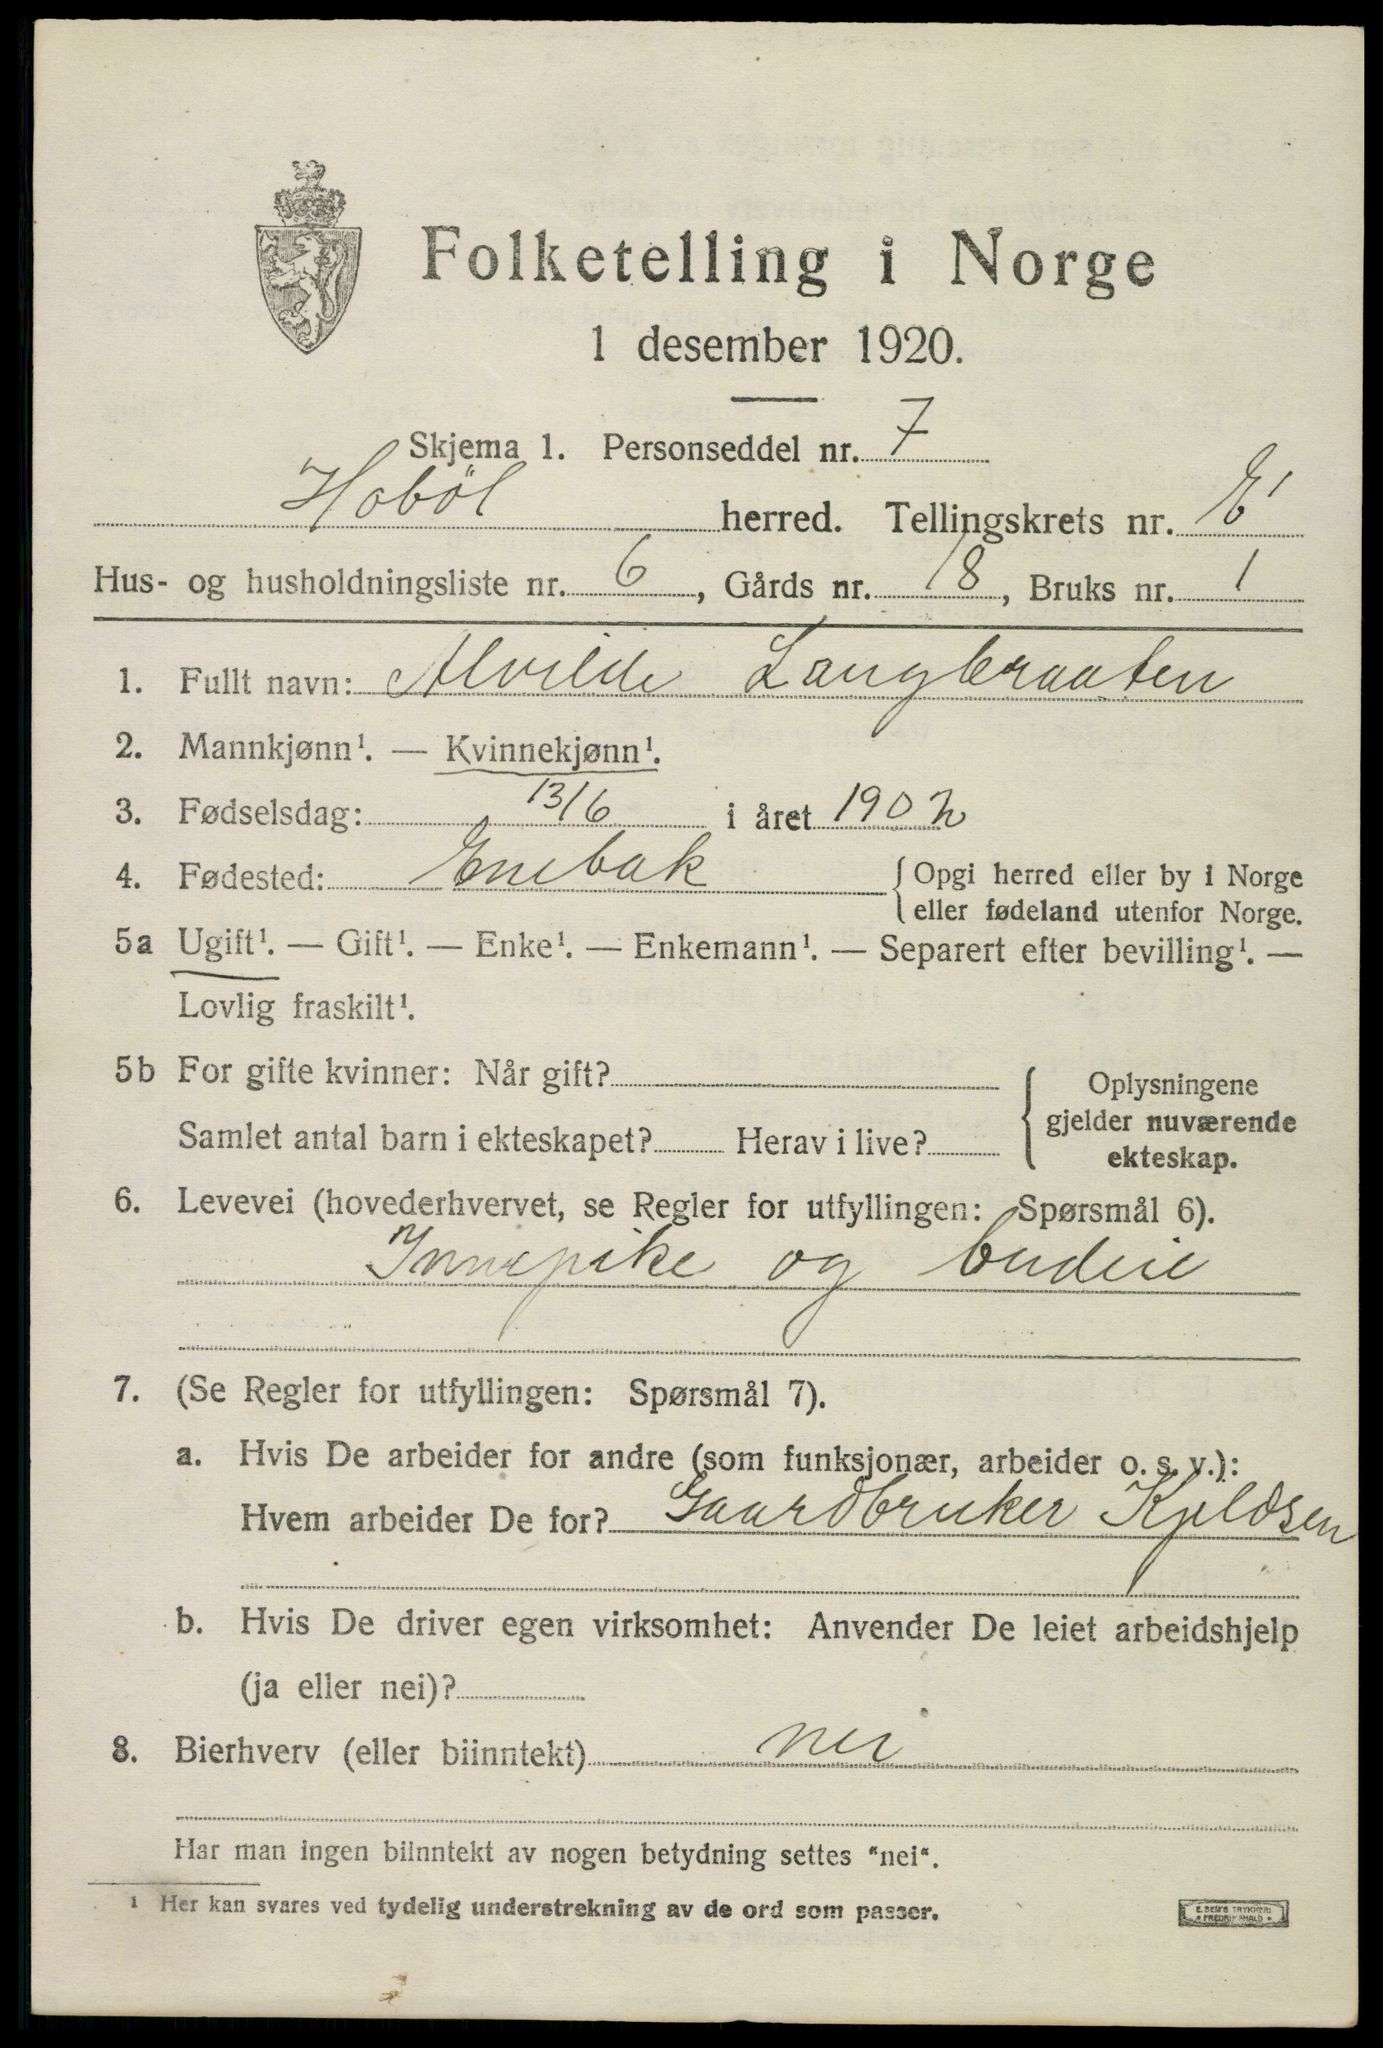 Folketelling i Norge
1 desember 1920.
Skjema 1. Personseddel nr. 7
Hobøl herred. Tellingskrets nr. E1
Hus- og husholdningsliste nr. 6, Gårds nr. 18, Bruks nr. 1
1. Fullt navn: Alvilde Langbraaten
2. Mannkjønn¹. — Kvinnekjønn¹.
3. Fødselsdag: 13/6 i året 1902
4. Fødested: Enebak { Opgi herred eller by i Norge
eller fødeland utenfor Norge.
5a Ugift¹. — Gift¹. — Enke¹. — Enkemann¹. — Separert efter bevilling¹. —
Lovlig fraskilt¹.
5b For gifte kvinner: Når gift? { Oplysningene
gjelder nuværende
ekteskap.
Samlet antal barn i ekteskapet? Herav i live?
6. Levevei (hovederhvervet, se Regler for utfyllingen: Spørsmål 6).
Innepike og budeie
7. (Se Regler for utfyllingen: Spørsmål 7).
a. Hvis De arbeider for andre (som funksjonær, arbeider o. s. v.):
Hvem arbeider De for? Gaardbruker Kjeldsen
b. Hvis De driver egen virksomhet: Anvender De leiet arbeidshjelp
(ja eller nei)?
8. Bierhverv (eller biinntekt) nei
Har man ingen biinntekt av nogen betydning settes "nei".
¹ Her kan svares ved tydelig understrekning av de ord som passer.
E. SEM'S TRYKKERI
• FREDRIKSHALD •